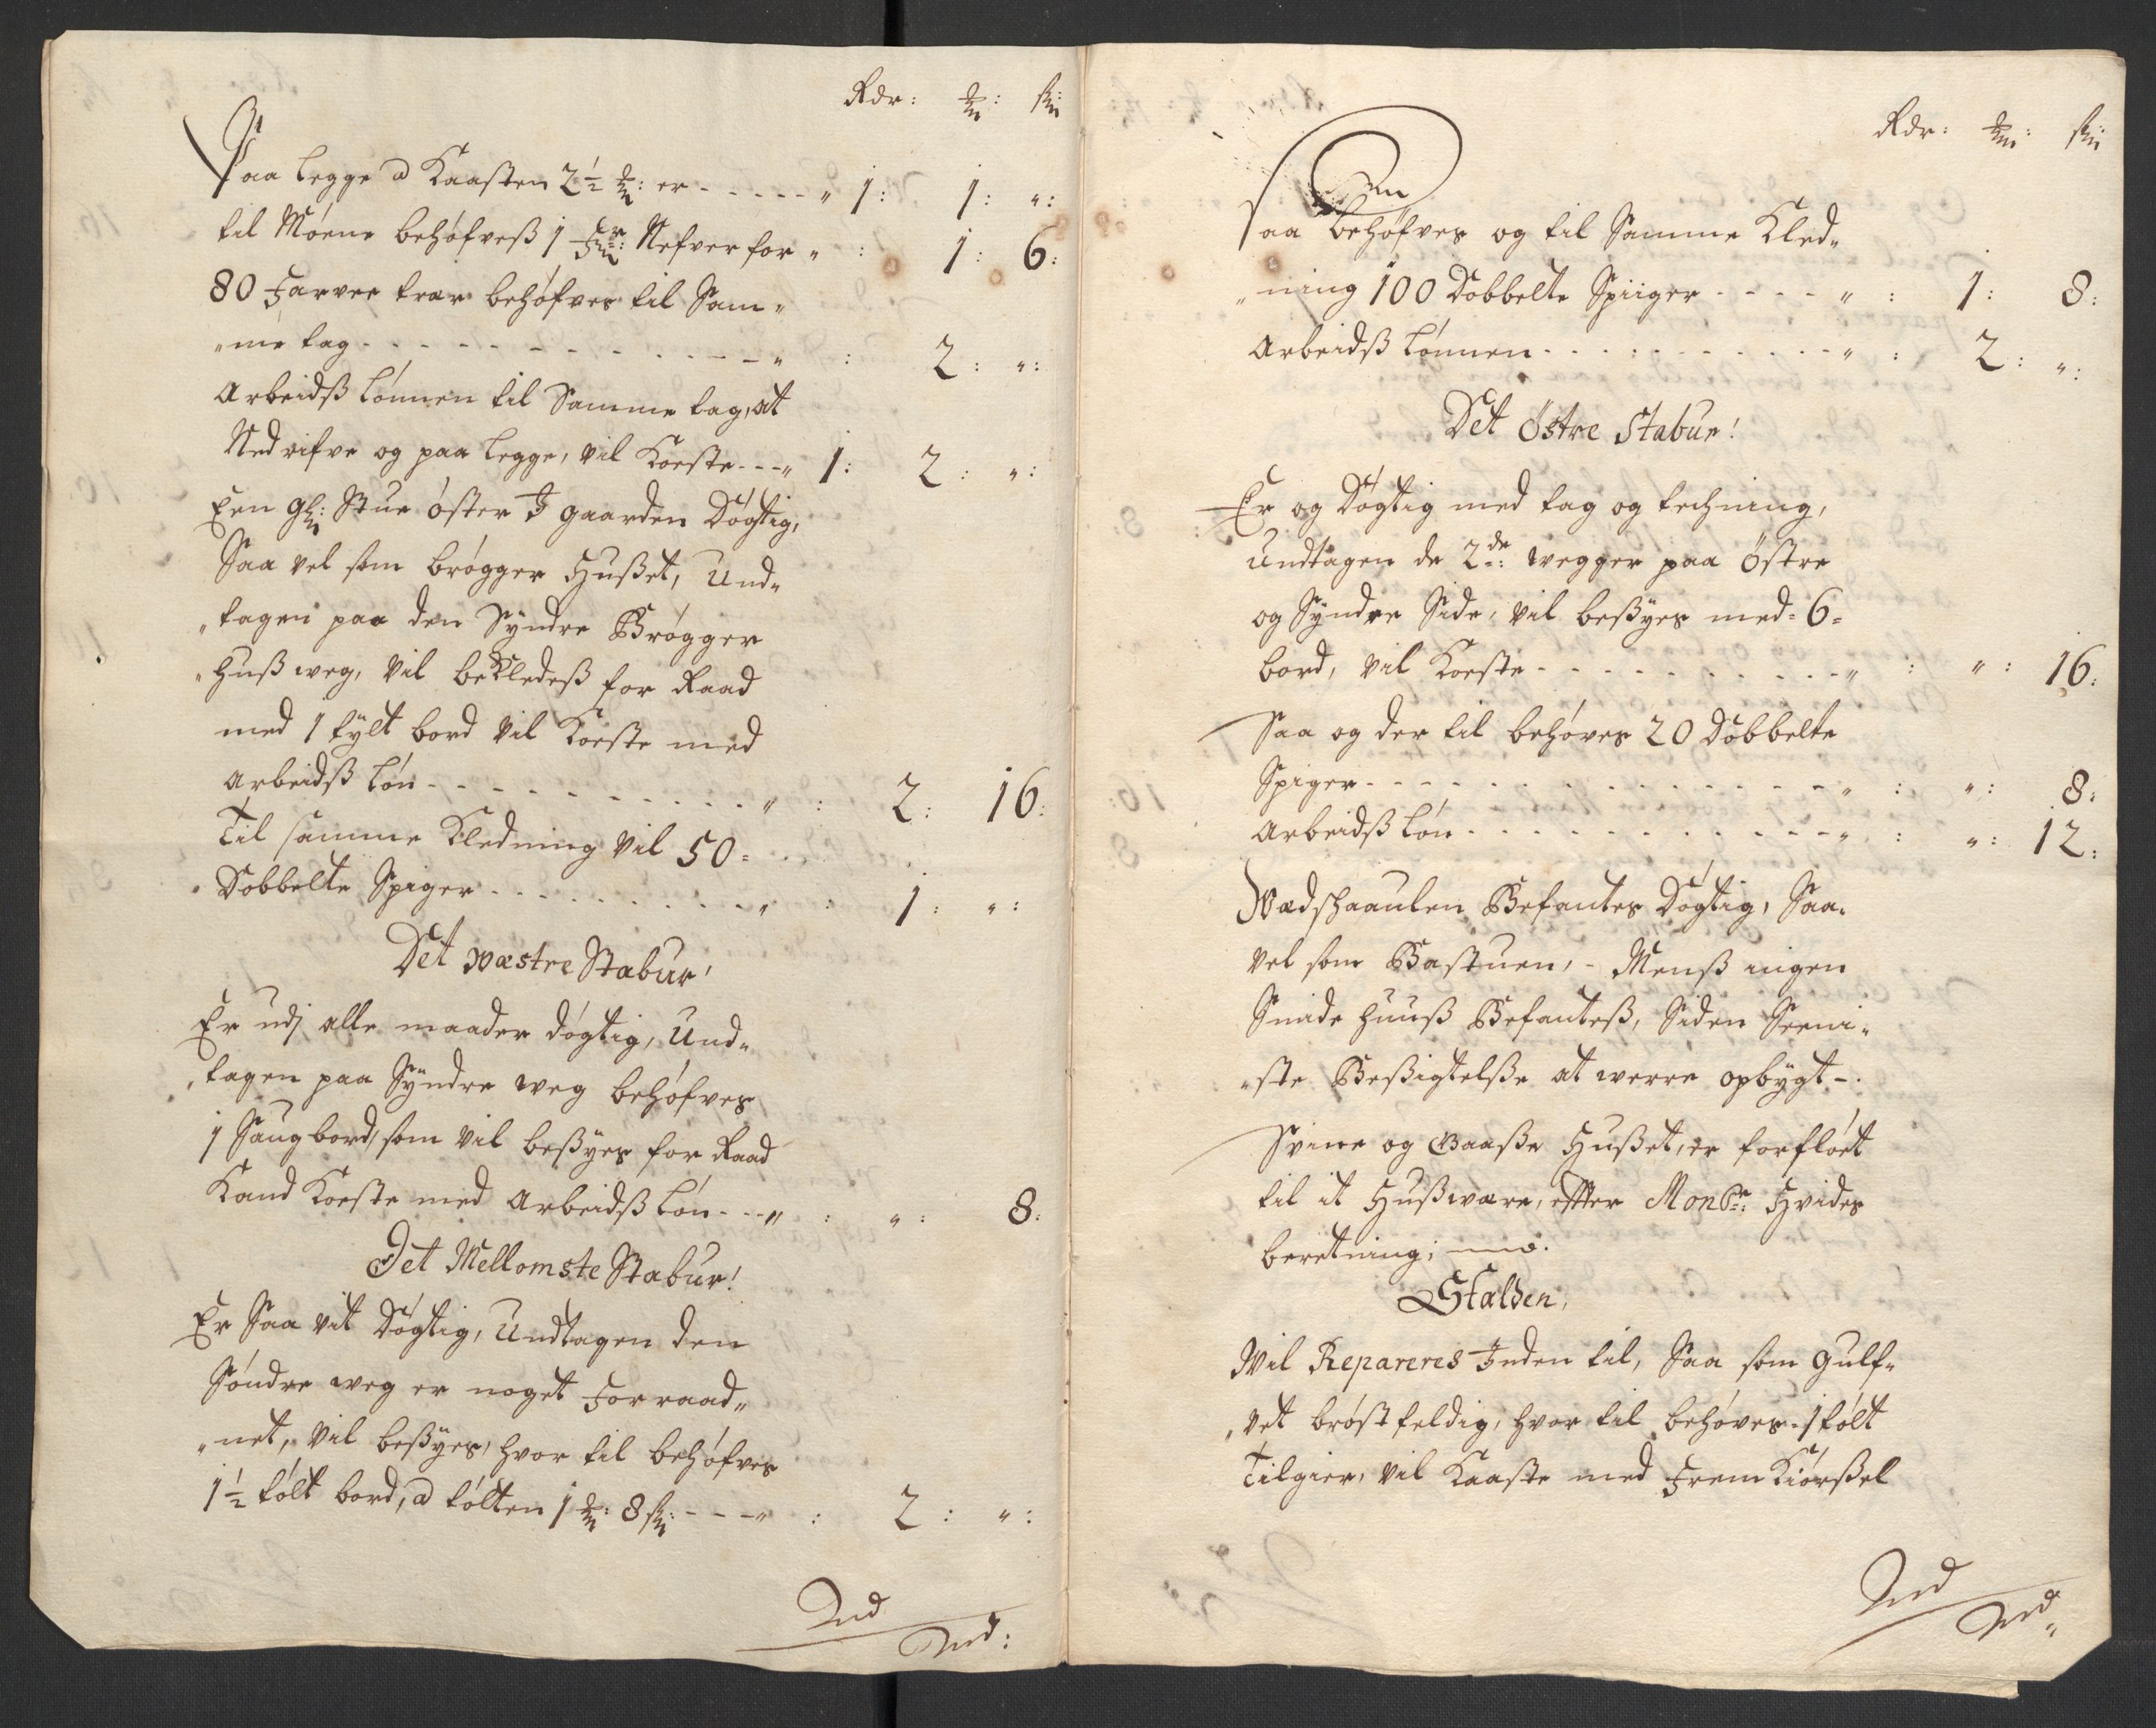 Rdr: mk: sk:
Paa legge a Kaasten 2½ mk: er - - - - - " 1: 1: ":
til Mønne behøfveß 1 Nefver for " : 1: 6:
80 Tarver træer behøfves til Sam"
"me tag - - - - - - - - - - - - " : 2: ":
Arbeidß lønnen til Samme tag, at
Nedrifve og paa legge, vil Koeste - - - " 1: 2: ":
Een gl: Stue øster I gaarden døgtig,
Saa vel som brøgger Hußet, Und"
"tagen paa den Syndre Brøgger
"huß weg, vil bekledeß for Raad
med 1 tylt bord vil Koeste med
Arbeidß løn - - - - - - - - - - " : 2: 16:
Til samme Kledning vil 50=
Dobbelte Spiger - - - - - - - - - " : 1: ":
Det wæstre Stabur!
Er udj alle maader døgtig, Und"
"tagen paa Syndre weg behøfves
1 Saugbord, som vil beßyes for Raad
Kand Koeste med Arbeidß løn - - - " : ": 8:
Det Mellomste Stabur!
Er Saa vit Døgtig, Undtagen den
Søndre weg er noget Forraad"
"net, vil beßyes, hvor til behøfves
1½ tølt bord, a tølten 1 mk: 8 sk: - - - " : 2: ":
Rdr: mk: sk:
Paa behøfves og til Samme Kled"
"ning 100 Dobbelte Spiiger - - - - " : 1: 8:
Arbeidß lønnen - - - - - - - - - - " : 2: ":
Det østre Stabur!
Er og Døgtig med tag og techning,
Undtagen de 2de: wegger paa østre
og Syndre Side, vil beßyes med = 6 =
bord, vil Koeste - - - - - - - - - - " : ": 16:
Saa og der til behøves 20 Dobbelte
Spiger - - - - - - - - - - - - - - " : ": 8:
Arbeidß løn - - - - - - - - - - - " : ": 12:
Wedschaaulen Befantes Døgtig, Saa"
vel som Bastuen, - Menß ingen
Smide huuß Befanteß, Siden Seeni"
"ste Beßigtelße at werre opbygt -.
Svine og Gaaße Hußet, er forfløt
til it Hußwære, effter Monsr: Hvides
beretning;
Stalden,
Wil Repareres Inden til, Saa som gulf"
"vet brøstfeldig, hvor til behøves - 1 tølt
Tilgier, vil Kaaste med Frem Kiørßel